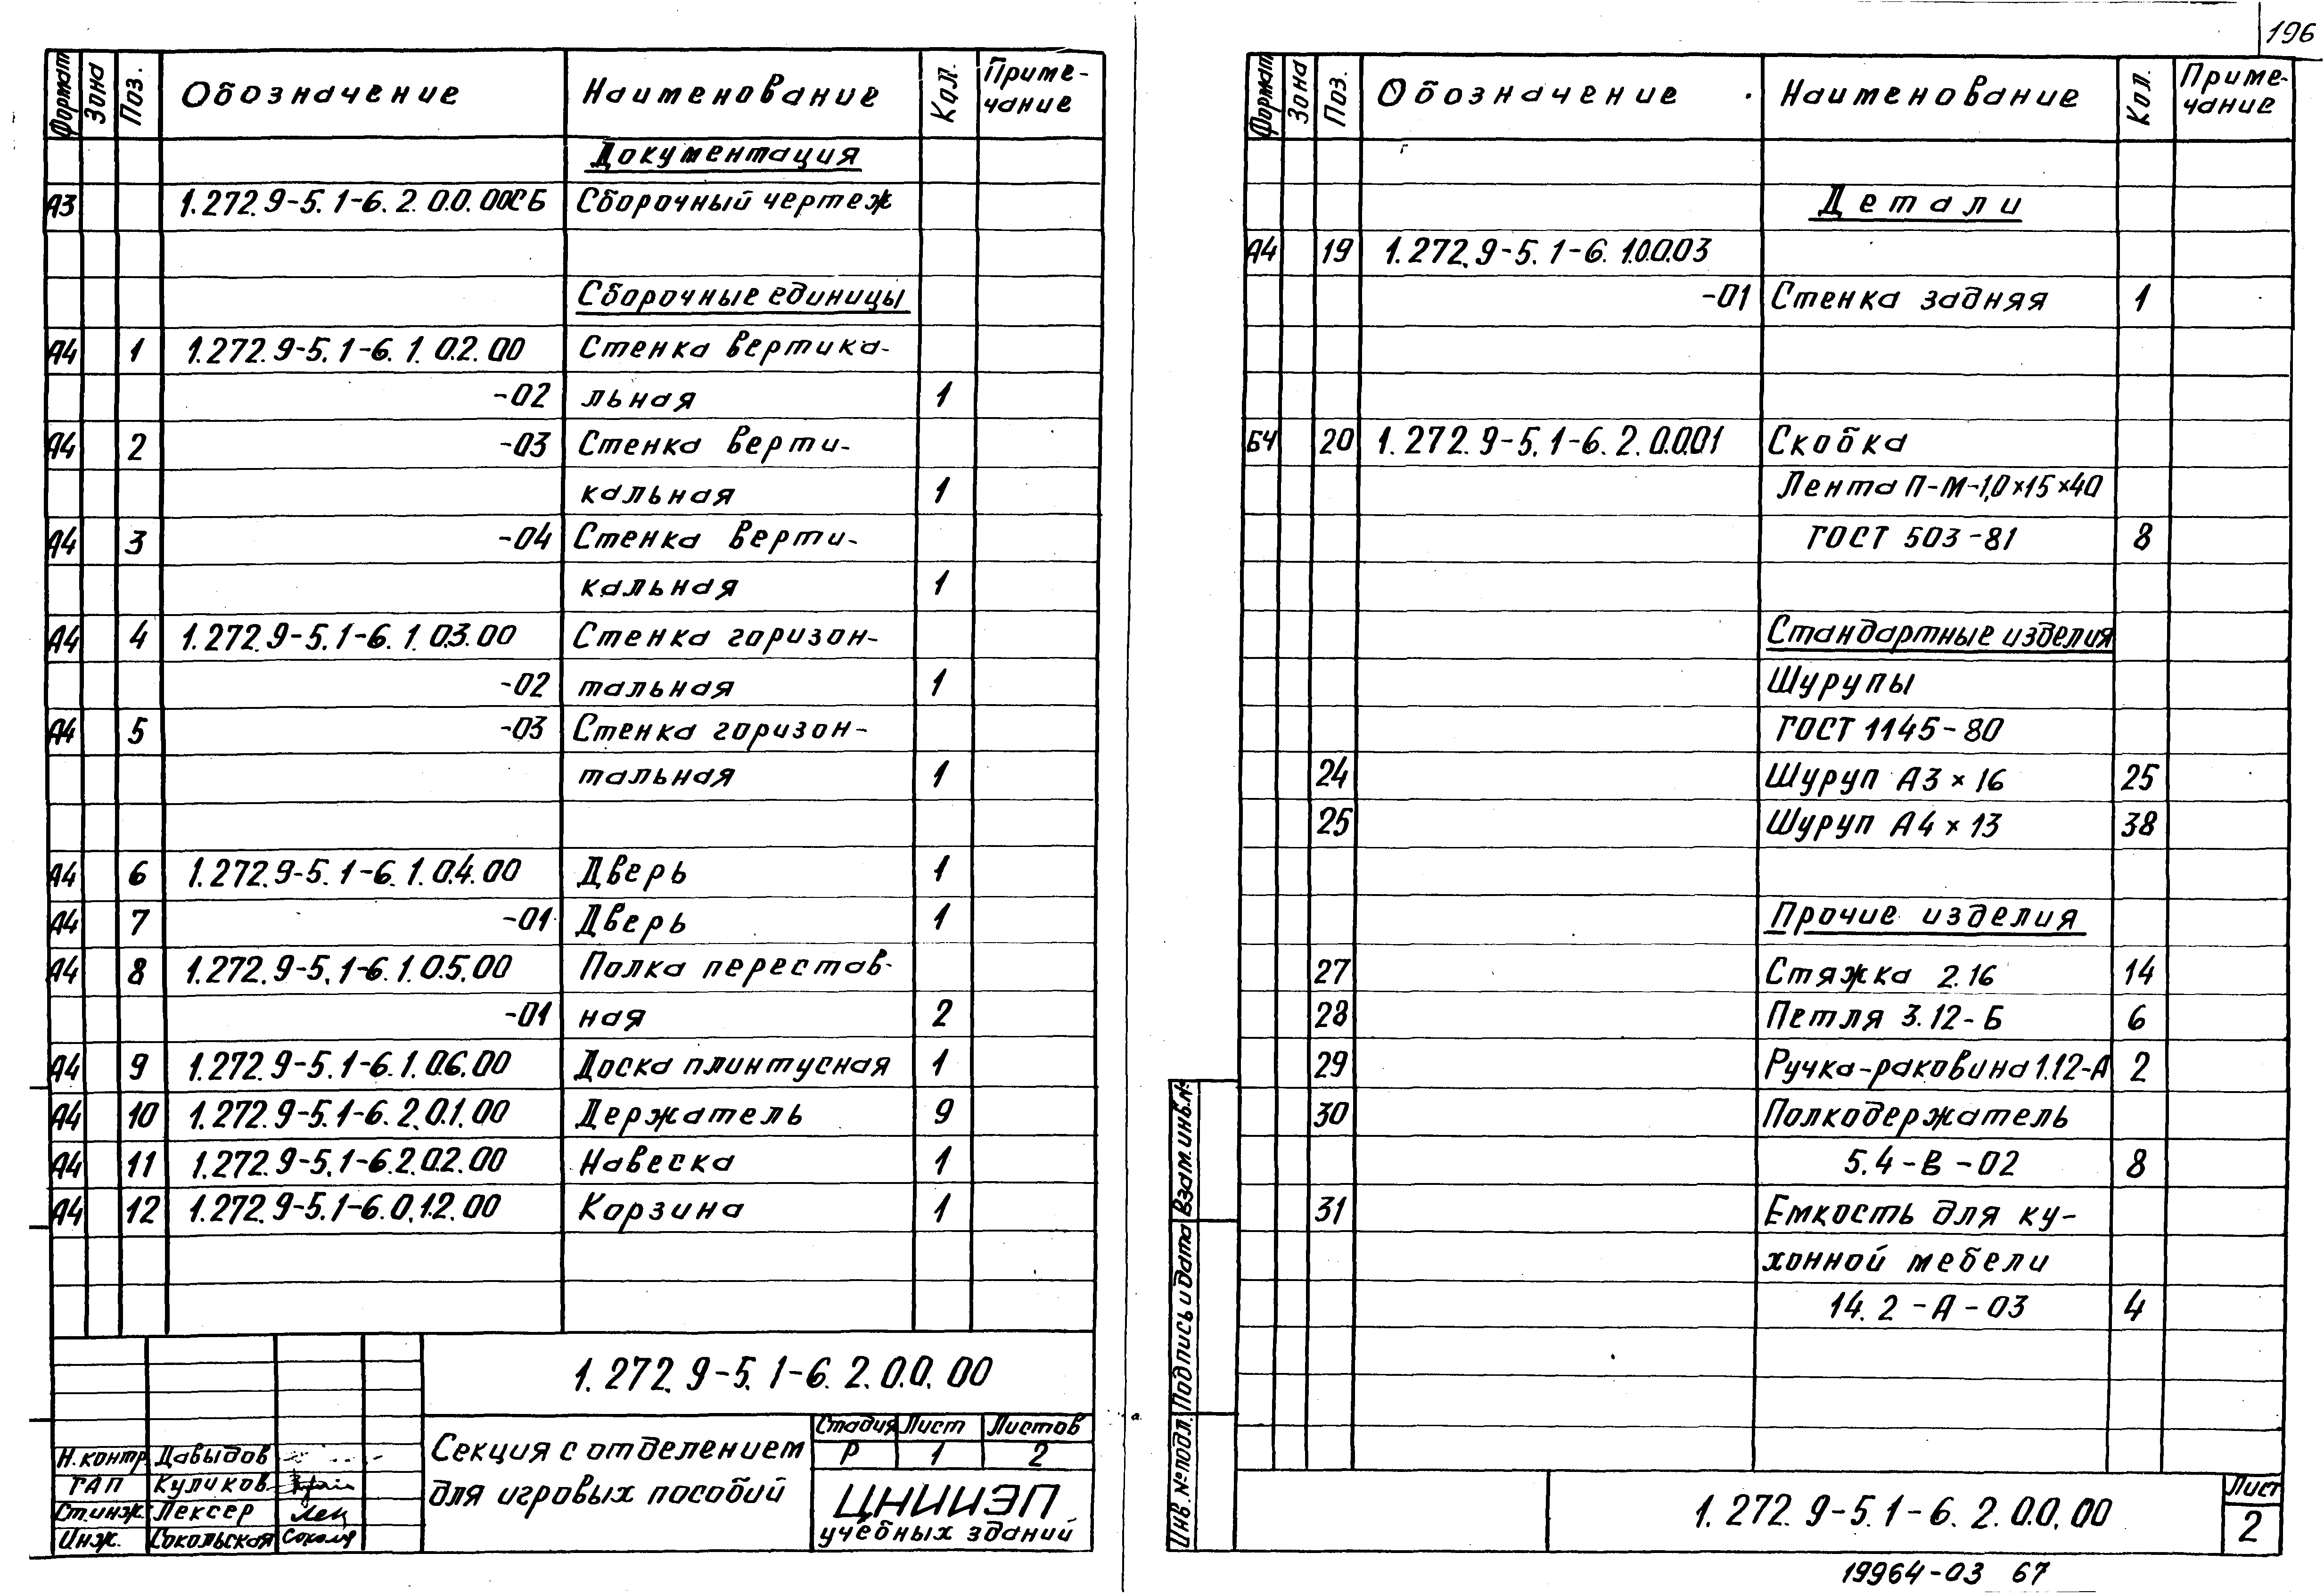 196
Формат Зона Поз. Обозначение Наименование Кол. Приме-
чание
Документация
А3 1.272.9-5.1-6.2.0.0.00СБ Сборочный чертеж
Сборочные единицы
А4 1 1.272.9-5.1-6.1.0.2.00 Стенка вертика-
-02 льная 1
А4 2 -03 Стенка верти-
кальная 1
А4 3 -04 Стенка верти-
кальная 1
А4 4 1.272.9-5.1-6.1.0.3.00 Стенка горизон-
-02 тальная 1
А4 5 -03 Стенка горизон-
тальная 1
А4 6 1.272.9-5.1-6.1.0.4.00 Дверь 1
А4 7 -01 Дверь 1
А4 8 1.272.9-5.1-6.1.0.5.00 Полка перестав-
-01 ная 2
А4 9 1.272.9-5.1-6.1.0.6.00 Доска плинтусная 1
А4 10 1.272.9-5.1-6.2.0.1.00 Держатель 9
А4 11 1.272.9-5.1-6.2.0.2.00 Навеска 1
А4 12 1.272.9-5.1-6.0.12.00 Корзина 1
1.272.9-5.1-6.2.0.0.00
Н.контр. Давыдов
ГАП Куликов
Ст.инж. Лексер Лек
Инж. Сокольская Сокол
Секция с отделением
для игровых пособий
Стадия Лист Листов
Р 1 2
ЦНИИЭП
учебных зданий
Формат Зона Поз. Обозначение Наименование Кол. Приме-
чание
Детали
А4 19 1.272.9-5.1-6.1.0.0.03
-01 Стенка задняя 1
БЧ 20 1.272.9-5.1-6.2.0.0.01 Скобка
Лента П-М-1,0×15×40
ГОСТ 503-81 8
Стандартные изделия
Шурупы
ГОСТ 1145-80
24 Шуруп А3×16 25
25 Шуруп А4×13 38
Прочие изделия
27 Стяжка 2.16 14
28 Петля 3.12-Б 6
29 Ручка-раковина 1.12-А 2
30 Полкодержатель
5.4-В-02 8
31 Емкость для ку-
хонной мебели
14.2-А-03 4
Инв.№подл. Подпись и дата Взам.инв.№
1.272.9-5.1-6.2.0.0.00
Лист
2
19964-03 67